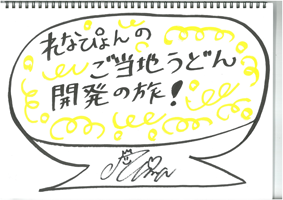 れなぴょんの
ご当地うどん
開発の旅！